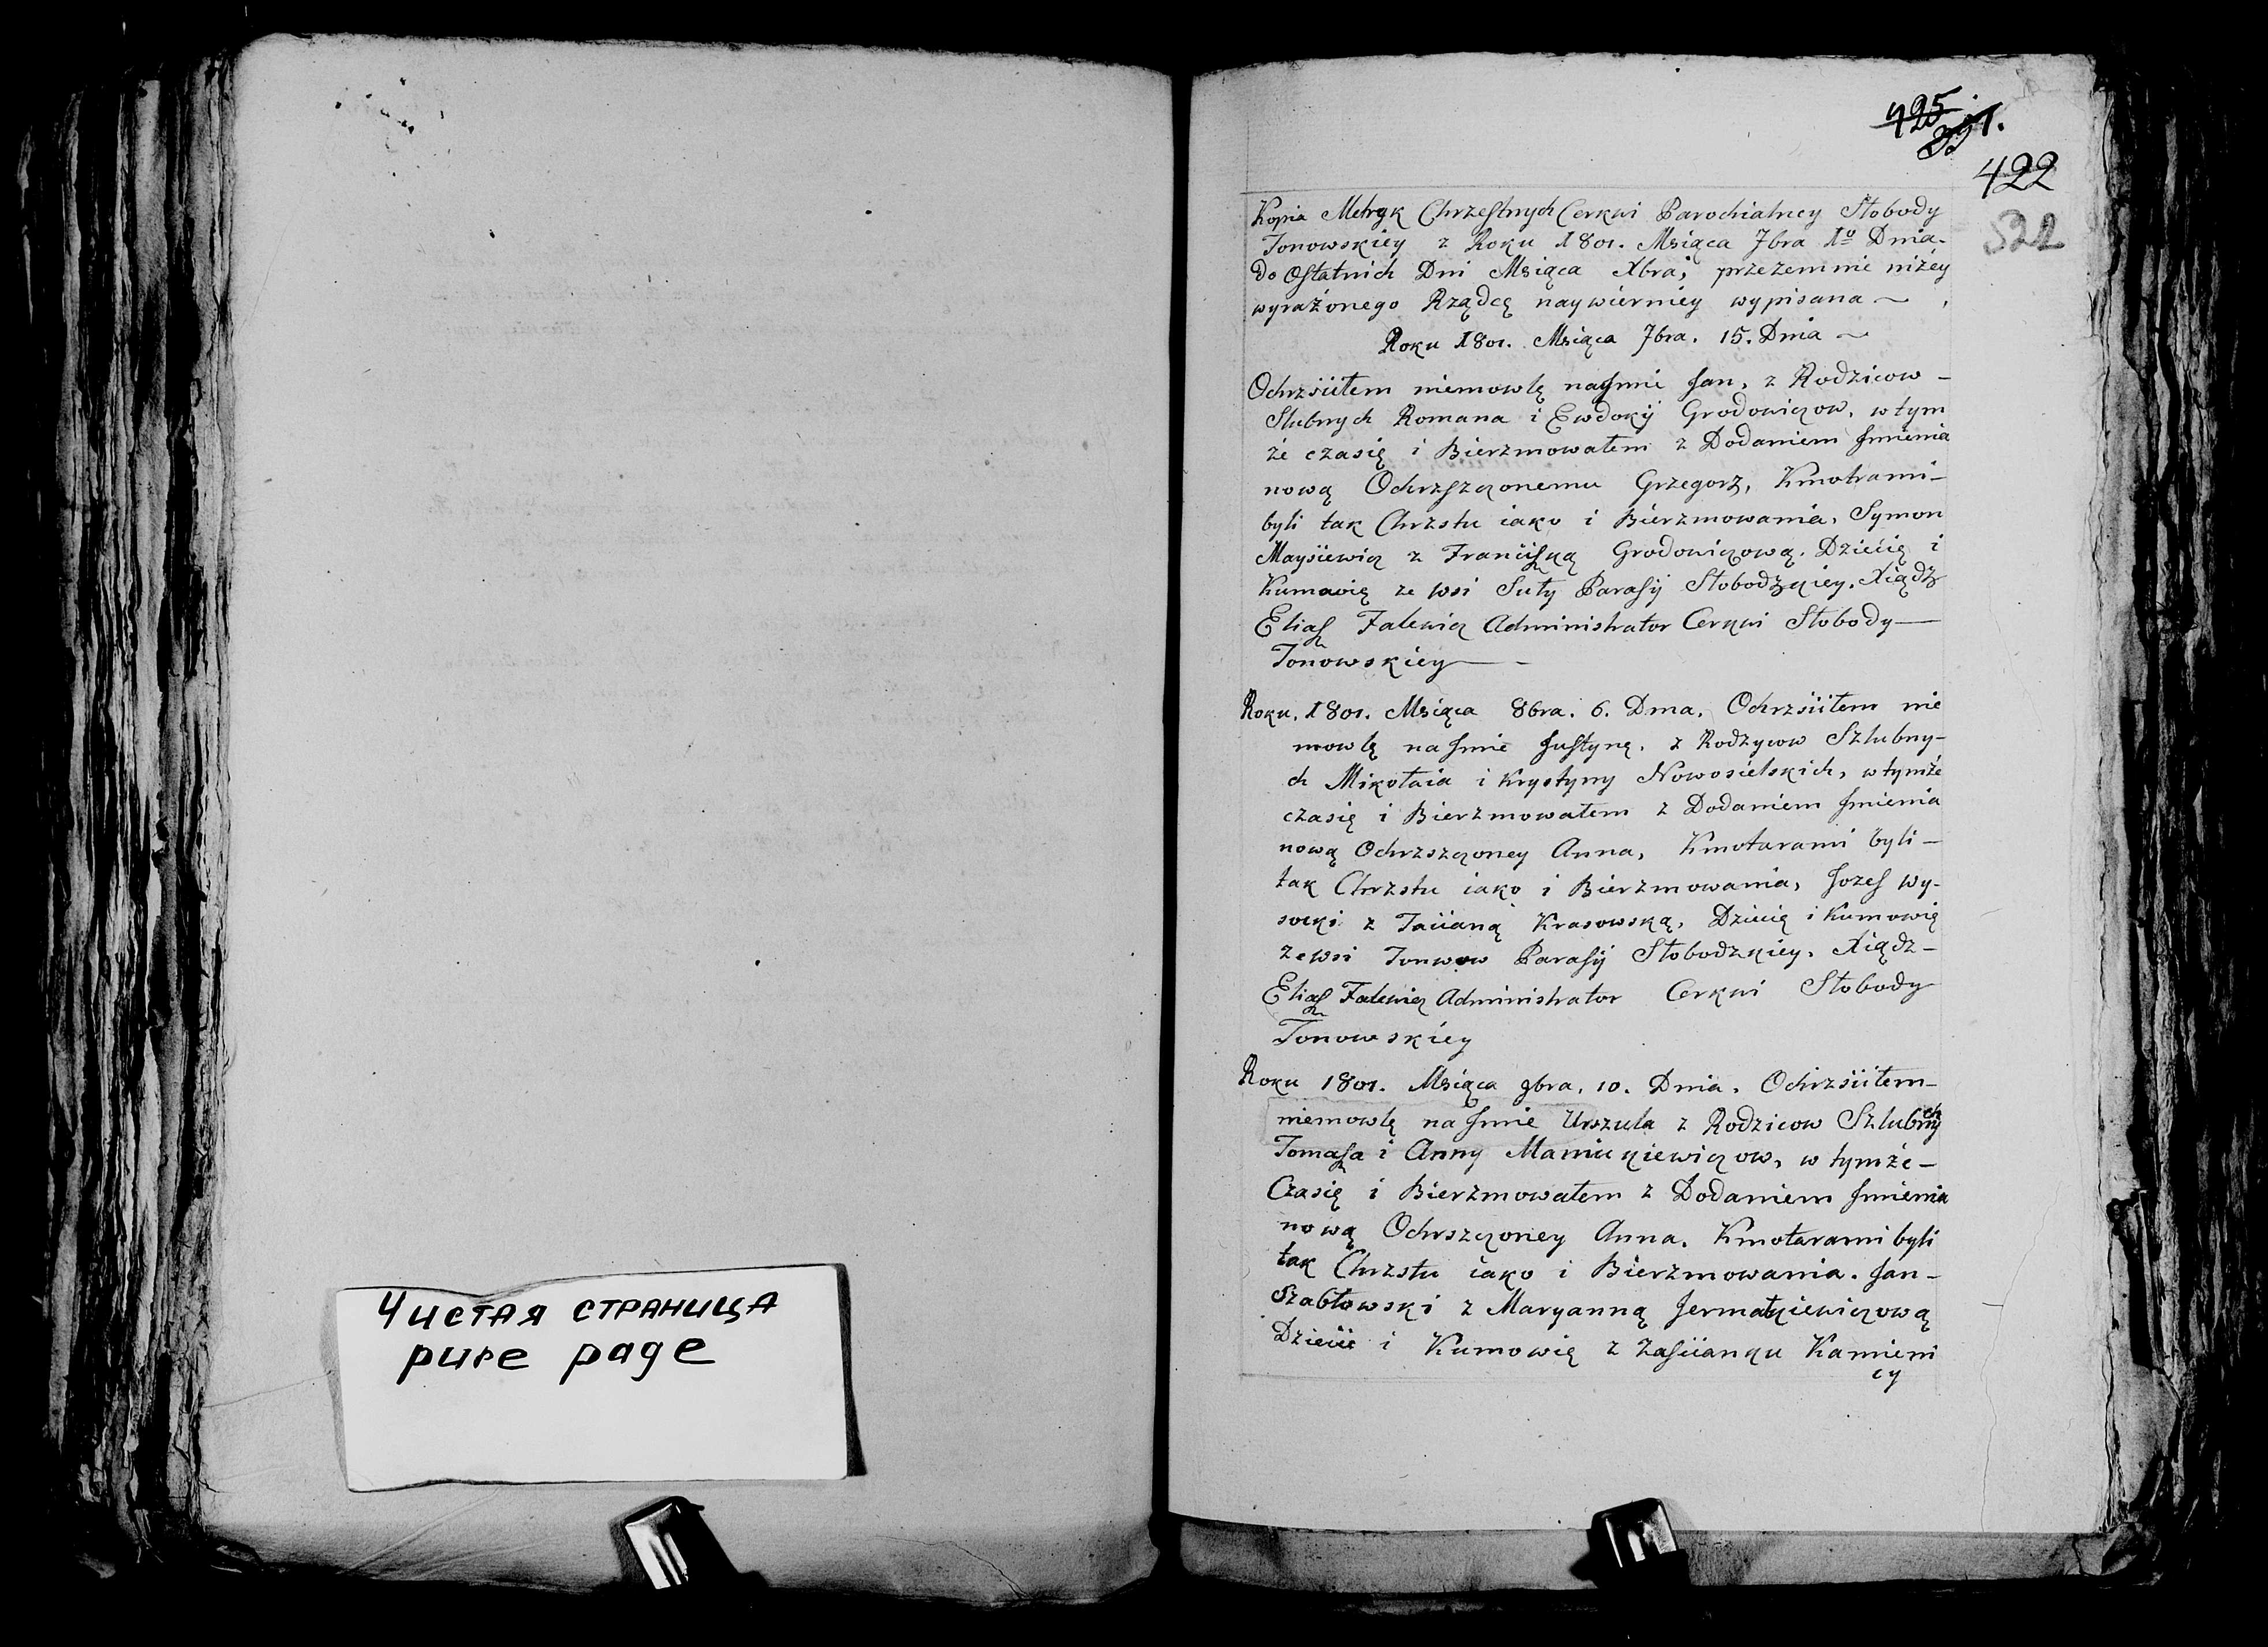 Чистая страница
pure page
425.
391.
422
522
Kopia Metryk Chrzestnych Cerkwi Parochialney Słobody
Jonowskiey z Roku 1801. Msiąca 7bra 1º Dnia-
do Ostatnich Dni Msiąca Xbra, przezemnie niżey
wyrażonego Rządcę naywierniey wypisana ~
Roku 1801. Msiąca 7bra. 15. Dnia ~
Ochrzciłem niemowlę na Jmie Jan, z Rodzicow -
Slubnych Romana i Ewdokij Grodowiczow, w tym
że czasię i Bierzmowałem z Dodaniem Jmienia
nową Ochrzszczonemu Grzegorz, Kmotrami-
byli tak Chrzstu iako i Bierzmowania, Symon
Maysiewicz z Franciszką Grodowiczową, Dziecię i
Kumowię ze wsi Suty Parafij Słobodzkiey. Xiądz
Eliasz Falewicz Administrator Cerkwi Słobody—
Jonowskiey —
Roku. 1801. Msiąca 8bra. 6. Dnia. Ochrzciłem nie
mowlę na Jmie Justynę, z Rodzycow Szlubny-
ch Mikołaia i Krystyny Nowosielskich, w tymże
czasię i Bierzmowałem z Dodaniem Jmienia
nową Ochrzszczoney Anna, Kmotarami byli —
tak Chrzstu iako i Bierzmowania, Jozef Wy-
socki z Tacianą Krasowską, Dziecię i Kumowię
ze wsi Jonwow Parafij Słobodzkiey. Xiądz -
Eliasz Falewicz Administrator Cerkwi Słobody
Jonowskiey
Roku 1801. Msiąca 9bra. 10. Dnia. Ochrzciłem-
niemowlę na Jmie Urszula z Rodzicow Szlubnych
Tomasza i Anny Mamickiewiczow, w tymże -
Czasię i Bierzmowałem z Dodaniem Jmienia
nową Ochrszczoney Anna. Kmotarami byli
tak Chrzstu iako i Bierzmowania. Jan -
Szabłowski z Maryanną Jermatkiewiczową
Dziecie i Kumowię z Zaścianku Kamieni
cy